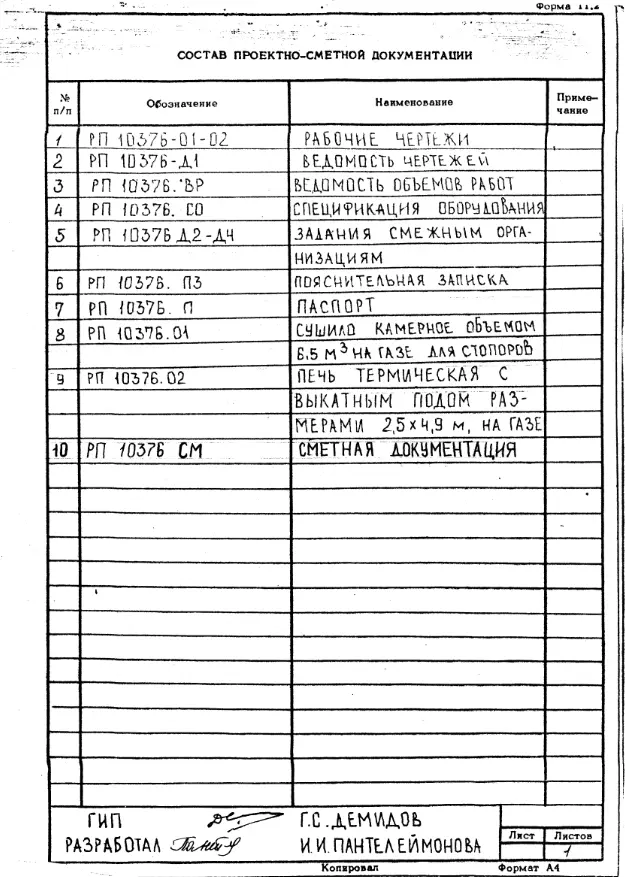 Форма 11.2
СОСТАВ ПРОЕКТНО-СМЕТНОЙ ДОКУМЕНТАЦИИ
№ п/п Обозначение Наименование Приме-
чание
1 РП 10376-01-02 РАБОЧИЕ ЧЕРТЕЖИ
2 РП 10376-Д1 ВЕДОМОСТЬ ЧЕРТЕЖЕЙ
3 РП 10376.ВР ВЕДОМОСТЬ ОБЪЕМОВ РАБОТ
4 РП 10376. СО СПЕЦИФИКАЦИЯ ОБОРУДОВАНИЯ
5 РП 10376 Д2-Д4 ЗАДАНИЯ СМЕЖНЫМ ОРГА-
НИЗАЦИЯМ
6 РП 10376. ПЗ ПОЯСНИТЕЛЬНАЯ ЗАПИСКА
7 РП 10376. П ПАСПОРТ
8 РП 10376.01 СУШИЛО КАМЕРНОЕ ОБЪЕМОМ
6,5 М³ НА ГАЗЕ ДЛЯ СТОПОРОВ
9 РП 10376.02 ПЕЧЬ ТЕРМИЧЕСКАЯ С
ВЫКАТНЫМ ПОДОМ РАЗ-
МЕРАМИ 2,5×4,9 М, НА ГАЗЕ
10 РП 10376 СМ СМЕТНАЯ ДОКУМЕНТАЦИЯ
ГИП Г.С.ДЕМИДОВ
РАЗРАБОТАЛ И.И.ПАНТЕЛЕЙМОНОВА
Лист Листов
1
Копировал Формат А4